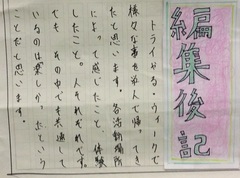 編集後記
トライやる・ウィークで
様々な事を学んで帰ってき
たと思います。各活動場所
によって感じたこと、体験
したこと。人それぞれです。
でも、その中でも共通して
いるのは「楽しかった」という
ことだと思います。